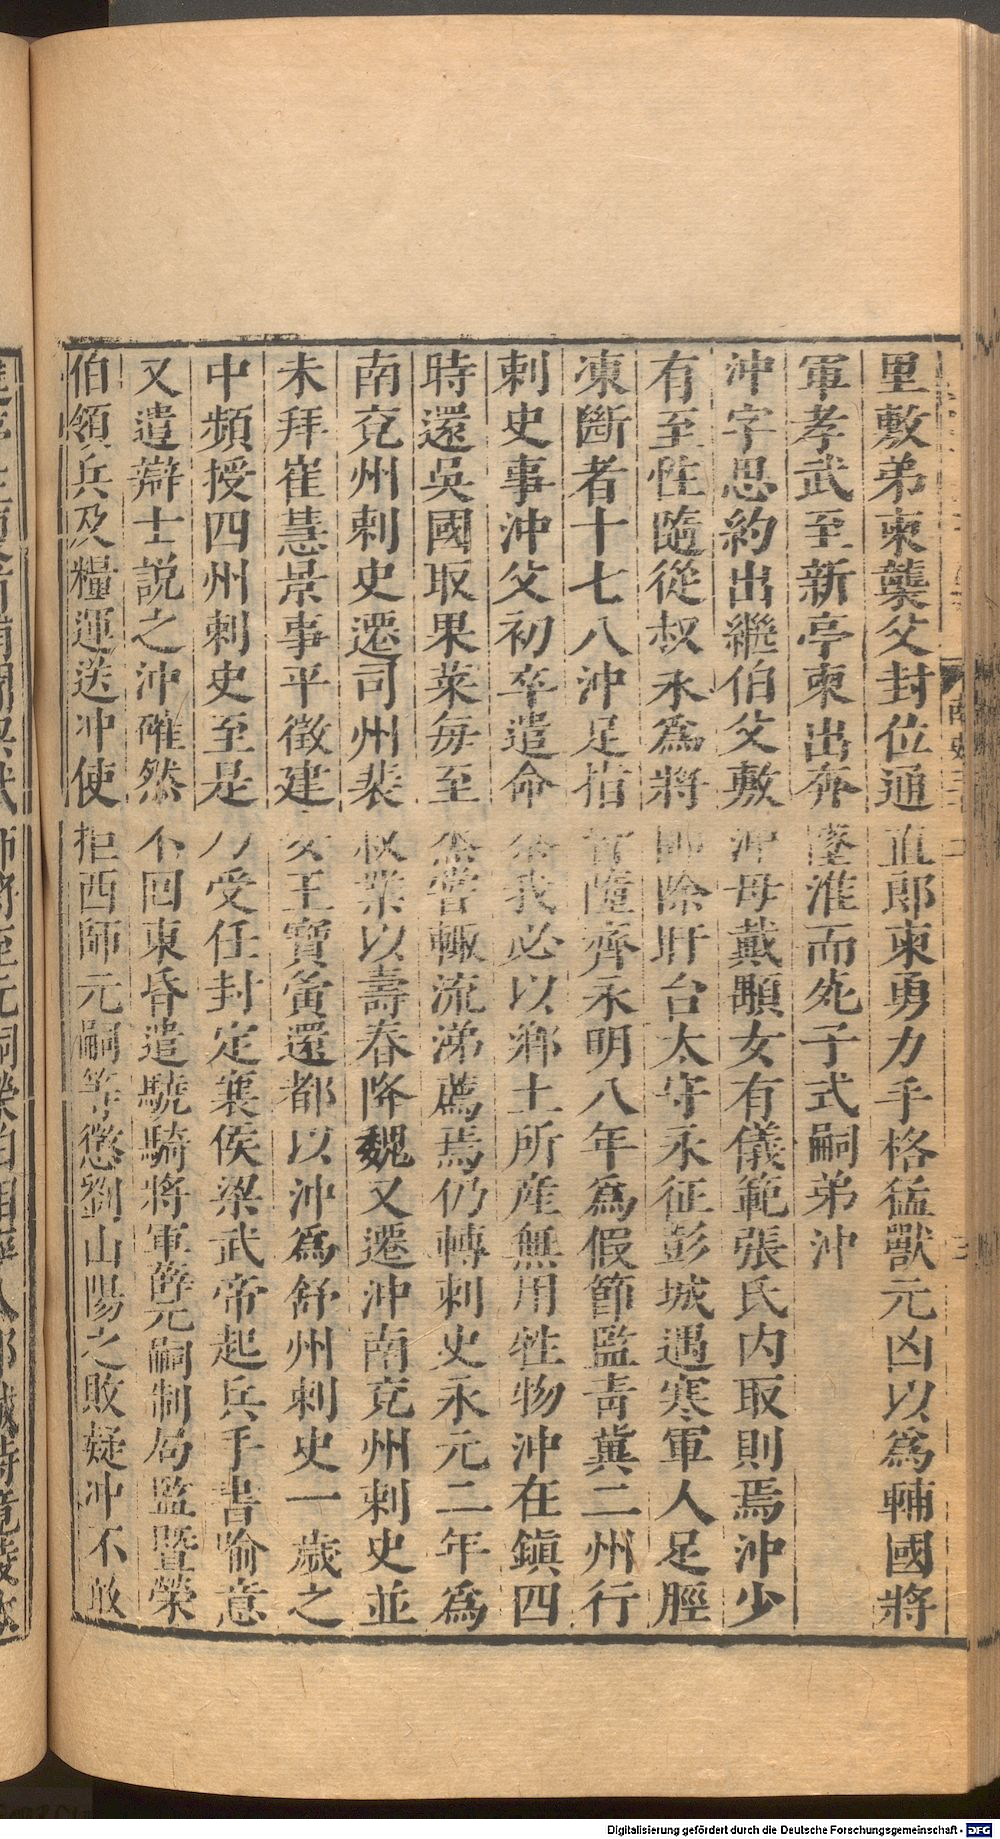 里敷弟柬襲父封位通直郎柬勇力手格猛獸元凶以爲輔國將
軍孝武至新亭柬出奔墜淮而死子式嗣弟沖
沖字思約出繼伯父敷沖母戴顒女有儀範張氏内取則焉沖少
有至性隨從叔永爲將帥除盱台太守永征彭城遇寒軍人足脛
凍斷者十七八沖足指皆墮齊永明八年爲假節監青冀二州行
刺史事沖父初卒遣命祭我必以鄉土所産無用牲物沖在鎮四
時還吳國取果菜每至烝嘗輙流涕薦焉仍轉刺史永元二年爲
南兖州刺史遷司州裴叔業以壽春降魏又遷沖南兖州刺史並
未拜崔慧景事平徵建安王寶夤還都以沖爲舒州刺史一歲之
中頻授四州刺史至是乃受任封定襄侯梁武帝起兵手書喻意
又遣辯士説之沖確然不回東昏遣驍騎將軍薛元嗣制局監暨榮
伯領兵及糧運送冲使拒西師元嗣等懲劉山陽之敗疑冲不敢
南史三十二
三
Digitalisierung gefördert durch die Deutsche Forschungsgemeinschaft - DFG